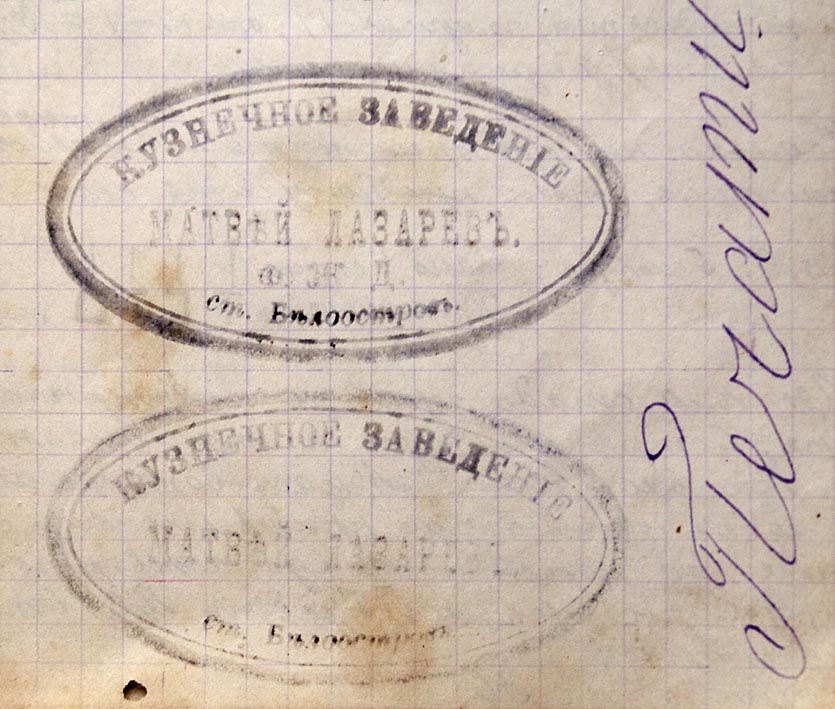 КУЗНЕЧНОЕ ЗАВЕДЕНІЕ
МАТВѢЙ ЛАЗАРЕВЪ.
Ф. Ж. Д.
ст. Бѣлоостровъ.
КУЗНЕЧНОЕ ЗАВЕДЕНІЕ
МАТВѢЙ ЛАЗАРЕВЪ.
ст. Бѣлоостровъ
Печати